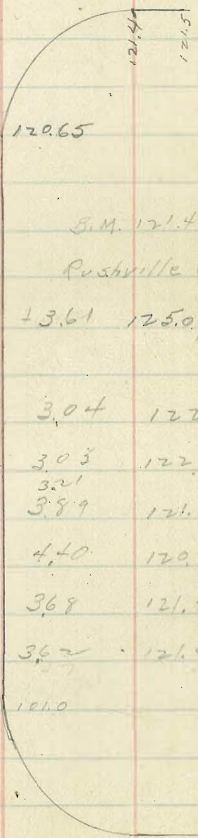 121.4
121.5
120.65
B.M. 121.4
Rushville
+3.61 125.0
3.04 122
3.03 122.
3.21
3.89 121.
4.40 120.
3.68 121.
3.62 121.
101.0